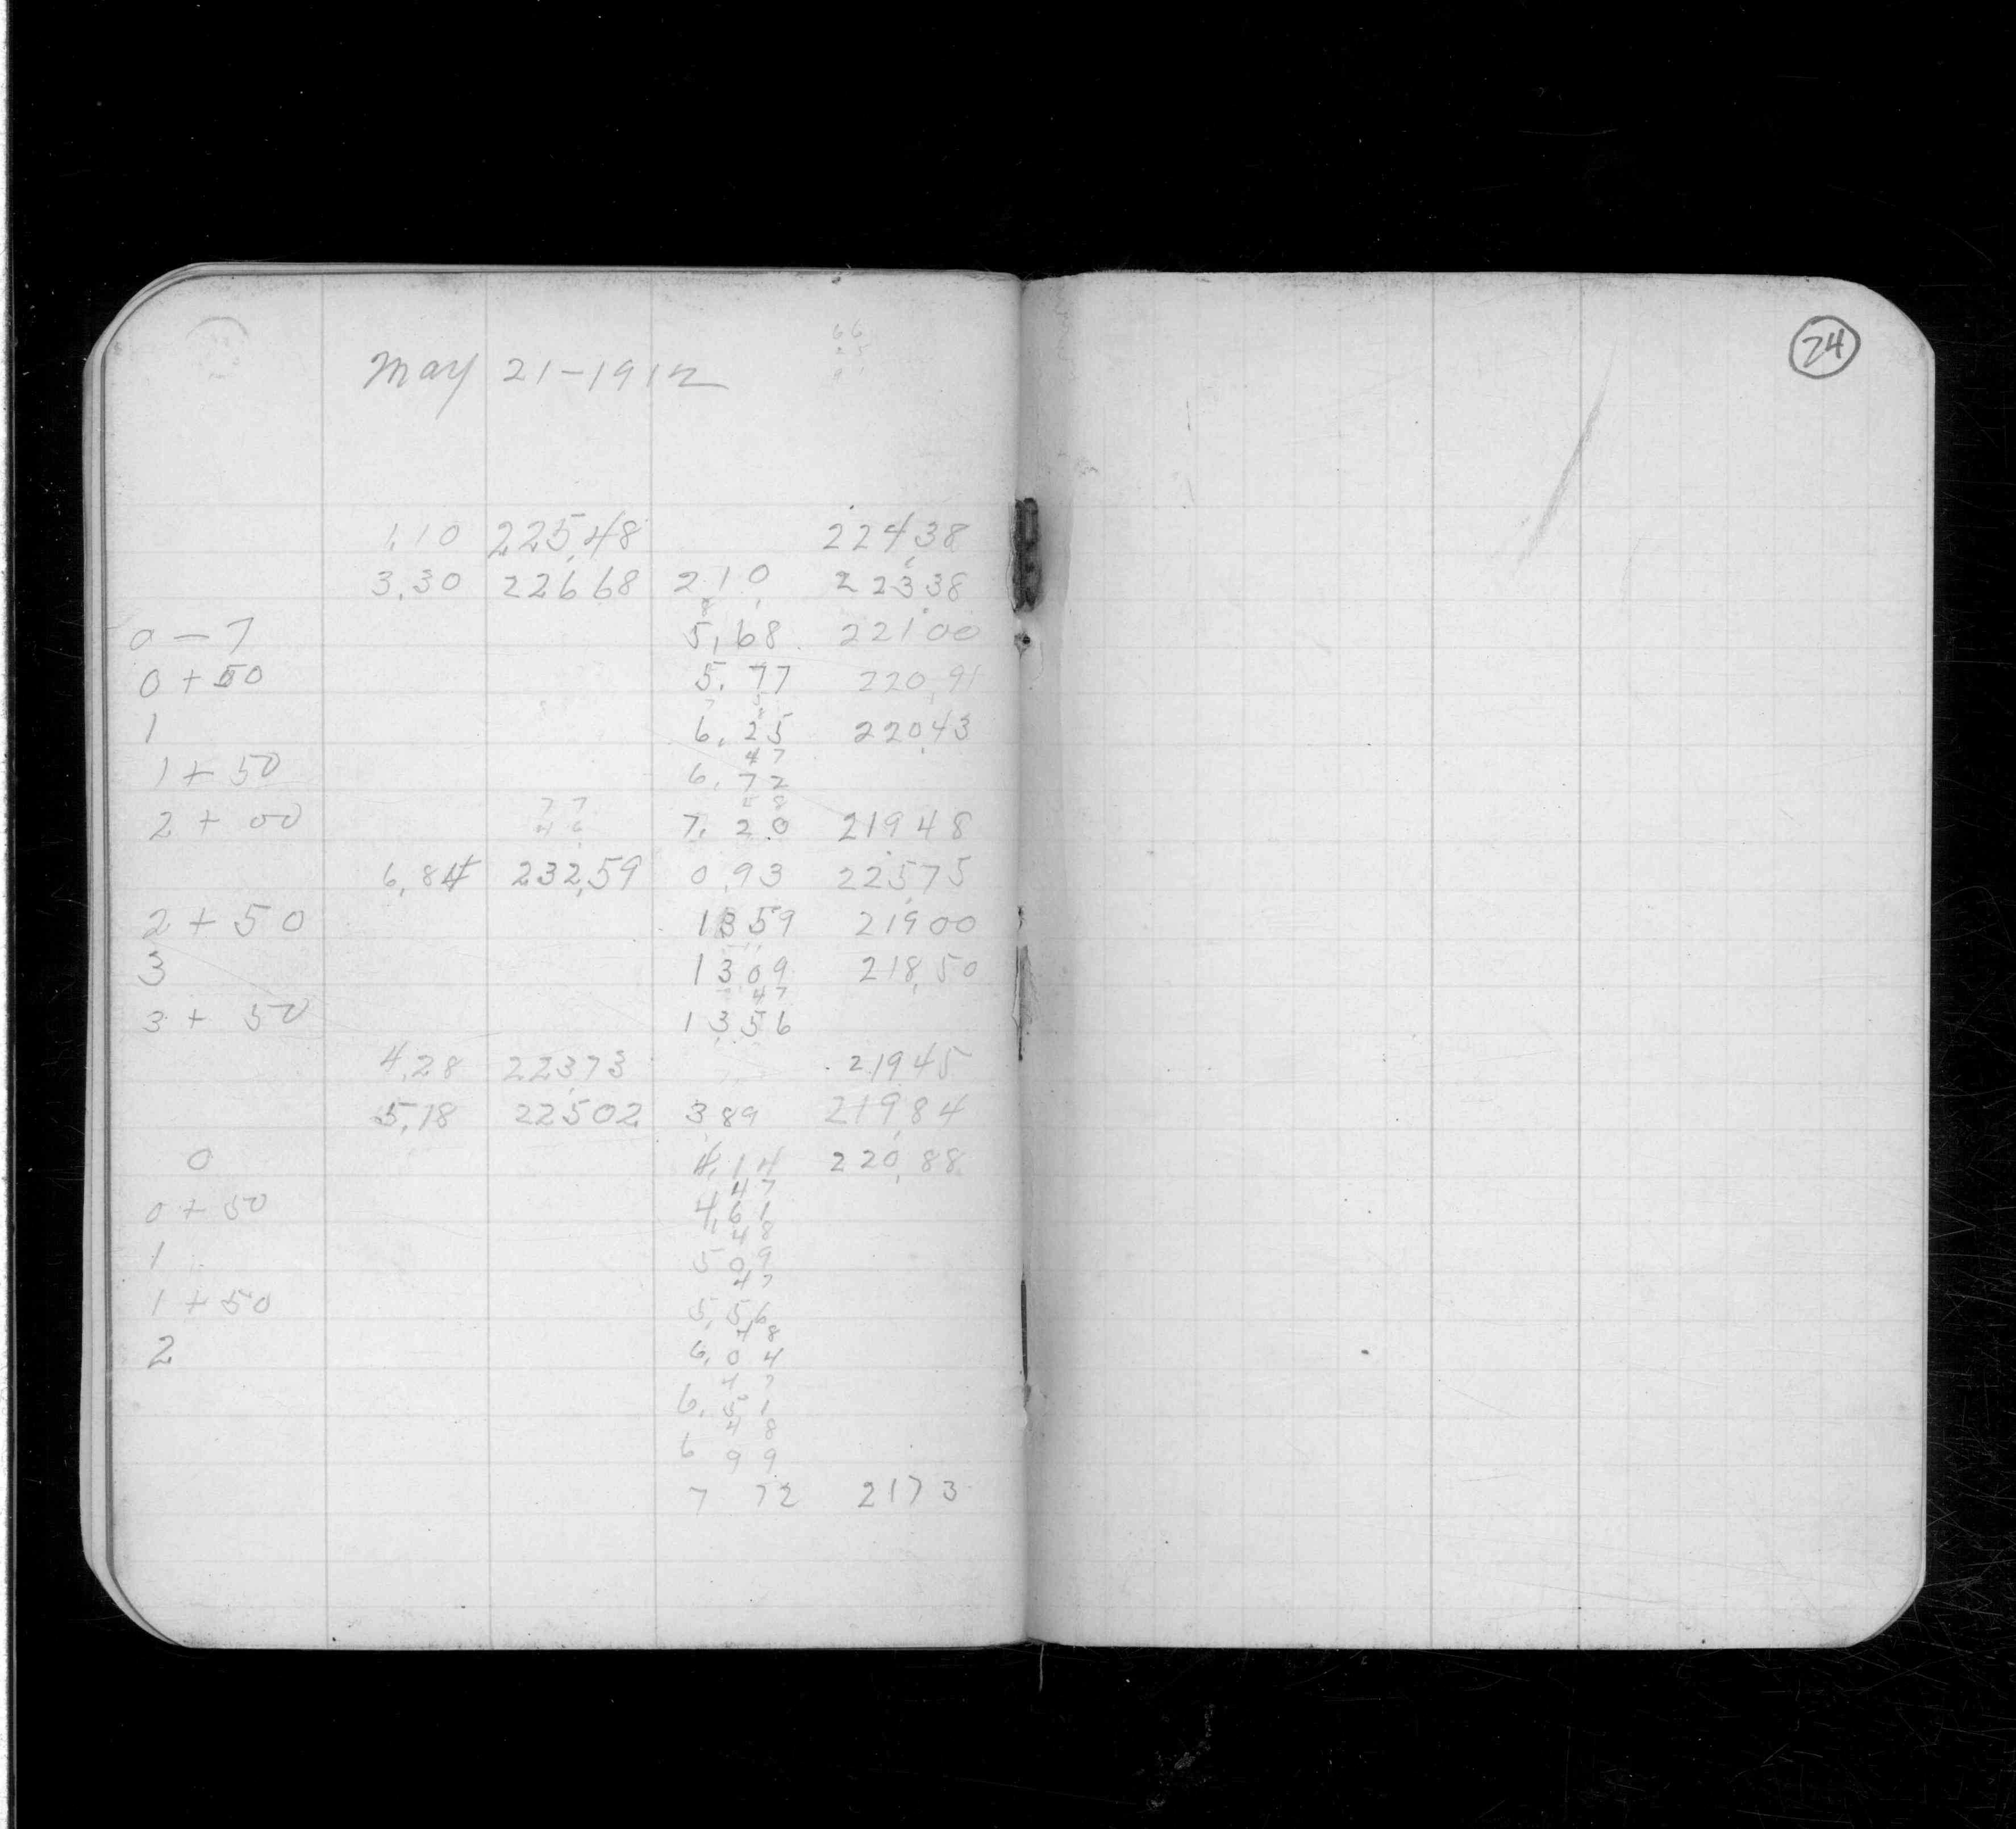 24
May 21-1912
1,10 225,48 224,38
3,30 226,68 2,10 223,38
0 - 7 5,68 221,00
0 + 50 5,77 220,91
1 6,25 220,43
47
1 + 50 6,72
48
2 + 00 7,20 219,48
6,84 232,59 0,93 225,75
2 + 50 13,59 219,00
3 13,09 218,50
47
3 + 50 13,56
4,28 223,73 219,45
5,18 225,02 3,89 219,84
0 4,14 220,88
47
0 + 50 4,61
48
1 5,09
47
1 + 50 5,56
48
2 6,04
47
6,51
48
6 99
7 72 2173